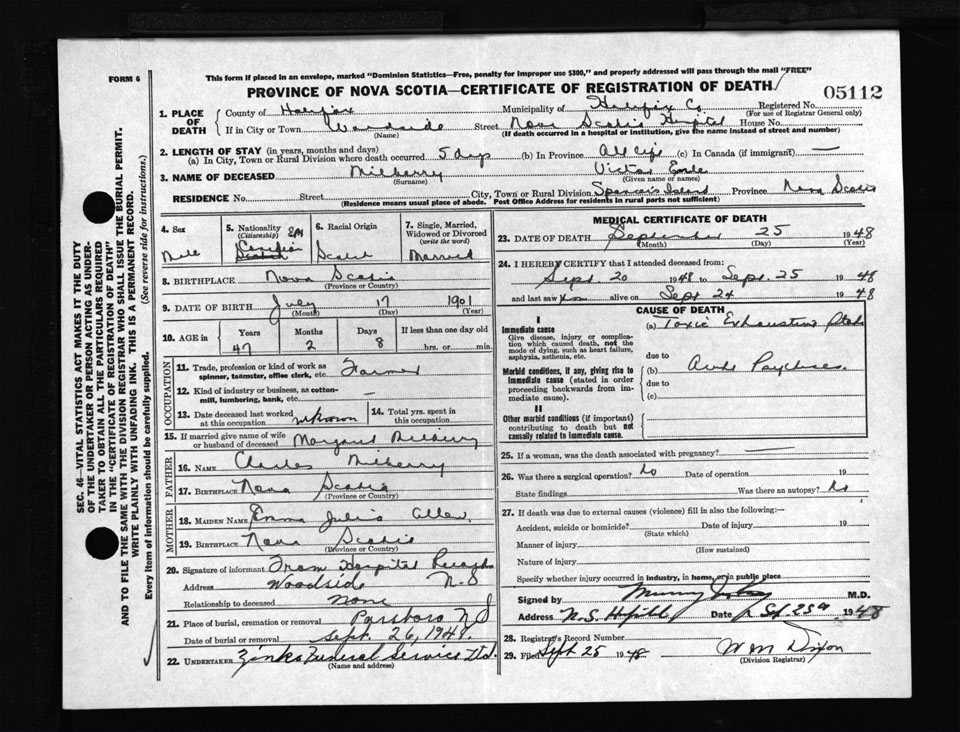 FORM 6
This form if placed in an envelope, marked "Dominion Statistics—Free, penalty for improper use $300," and properly addressed will pass through the mail "FREE"
PROVINCE OF NOVA SCOTIA—CERTIFICATE OF REGISTRATION OF DEATH
05112
SEC. 46—VITAL STATISTICS ACT MAKES IT THE DUTY
OF THE UNDERTAKER OR PERSON ACTING AS UNDER-
TAKER TO OBTAIN ALL THE PARTICULARS REQUIRED
IN THE "CERTIFICATE OF REGISTRATION OF DEATH"
AND TO FILE THE SAME WITH THE DIVISION REGISTRAR WHO SHALL ISSUE THE BURIAL PERMIT.
WRITE PLAINLY WITH UNFADING INK. THIS IS A PERMANENT RECORD.
Every item of information should be carefully supplied. (See reverse side for instructions.)
1. PLACE OF DEATH
County of Halifax Municipality of Halifax Co Registered No.
(For use of Registrar General only)
If in City or Town Woodside Street Nova Scotia Hospital House No.
(Name) (If death occurred in a hospital or institution, give the name instead of street and number)
2. LENGTH OF STAY (in years, months and days)
(a) In City, Town or Rural Division where death occurred 5 days (b) In Province All life (c) In Canada (if immigrant) —
3. NAME OF DECEASED Milberry Victor Earle
(Surname) (Given name or names)
RESIDENCE No. Street City, Town or Rural Division Spencer's Island Province Nova Scotia
(Residence means usual place of abode. Post Office Address for residents in rural parts not sufficient)
4. Sex
Male
5. Nationality
(Citizenship)
Canadian
6. Racial Origin
7. Single, Married,
Widowed or Divorced
(write the word)
Married
8. BIRTHPLACE Nova Scotia
(Province or Country)
9. DATE OF BIRTH July 17 1901
(Month) (Day) (Year)
10. AGE in Years Months Days If less than one day old
47 2 8 hrs. or min.
OCCUPATION
11. Trade, profession or kind of work as
spinner, teamster, office clerk, etc. Farmer
12. Kind of industry or business, as cotton-
mill, lumbering, bank, etc. —
13. Date deceased last worked
at this occupation unknown
14. Total yrs. spent in
this occupation
15. If married give name of wife
or husband of deceased Margaret Milberry
FATHER
16. NAME Charles Milberry
17. BIRTHPLACE Nova Scotia
(Province or Country)
MOTHER
18. MAIDEN NAME Emma Julia Allen
19. BIRTHPLACE Nova Scotia
(Province or Country)
20. Signature of informant From Hospital Records
Address Woodside N-S
Relationship to deceased None
21. Place of burial, cremation or removal Parsboro N S
Date of burial or removal Sept. 26, 1948.
22. UNDERTAKER Zinks Funeral Service Ltd.
(Name and address)
MEDICAL CERTIFICATE OF DEATH
23. DATE OF DEATH September 25 1948
(Month) (Day) (Year)
24. I HEREBY CERTIFY that I attended deceased from:
Sept 20 1948 to Sept. 25 1948
and last saw him alive on Sept 24 1948
CAUSE OF DEATH
I
Immediate cause
Give disease, injury or complica-
tion which caused death, not the
mode of dying, such as heart failure,
asphyxia, asthenia, etc.
(a) Toxic Exhaustive State
due to
Morbid conditions, if any, giving rise to
immediate cause (stated in order
proceeding backwards from im-
mediate cause).
(b) Acute Psychosis
due to
(c)
II
Other morbid conditions (if important)
contributing to death but not
causally related to immediate cause.
25. If a woman, was the death associated with pregnancy? —
26. Was there a surgical operation? No Date of operation 19
State findings Was there an autopsy? No
27. If death was due to external causes (violence) fill in also the following:—
Accident, suicide or homicide? Date of injury 19
(State which)
Manner of injury
(How sustained)
Nature of injury
Specify whether injury occurred in industry, in home, or in public place
Signed by Murray M.D.
Address N.S. Hospital Date Sept. 25th 1948
28. Registrar's Record Number
29. Filed Sept 25 1948 W M Dixon
(Division Registrar)